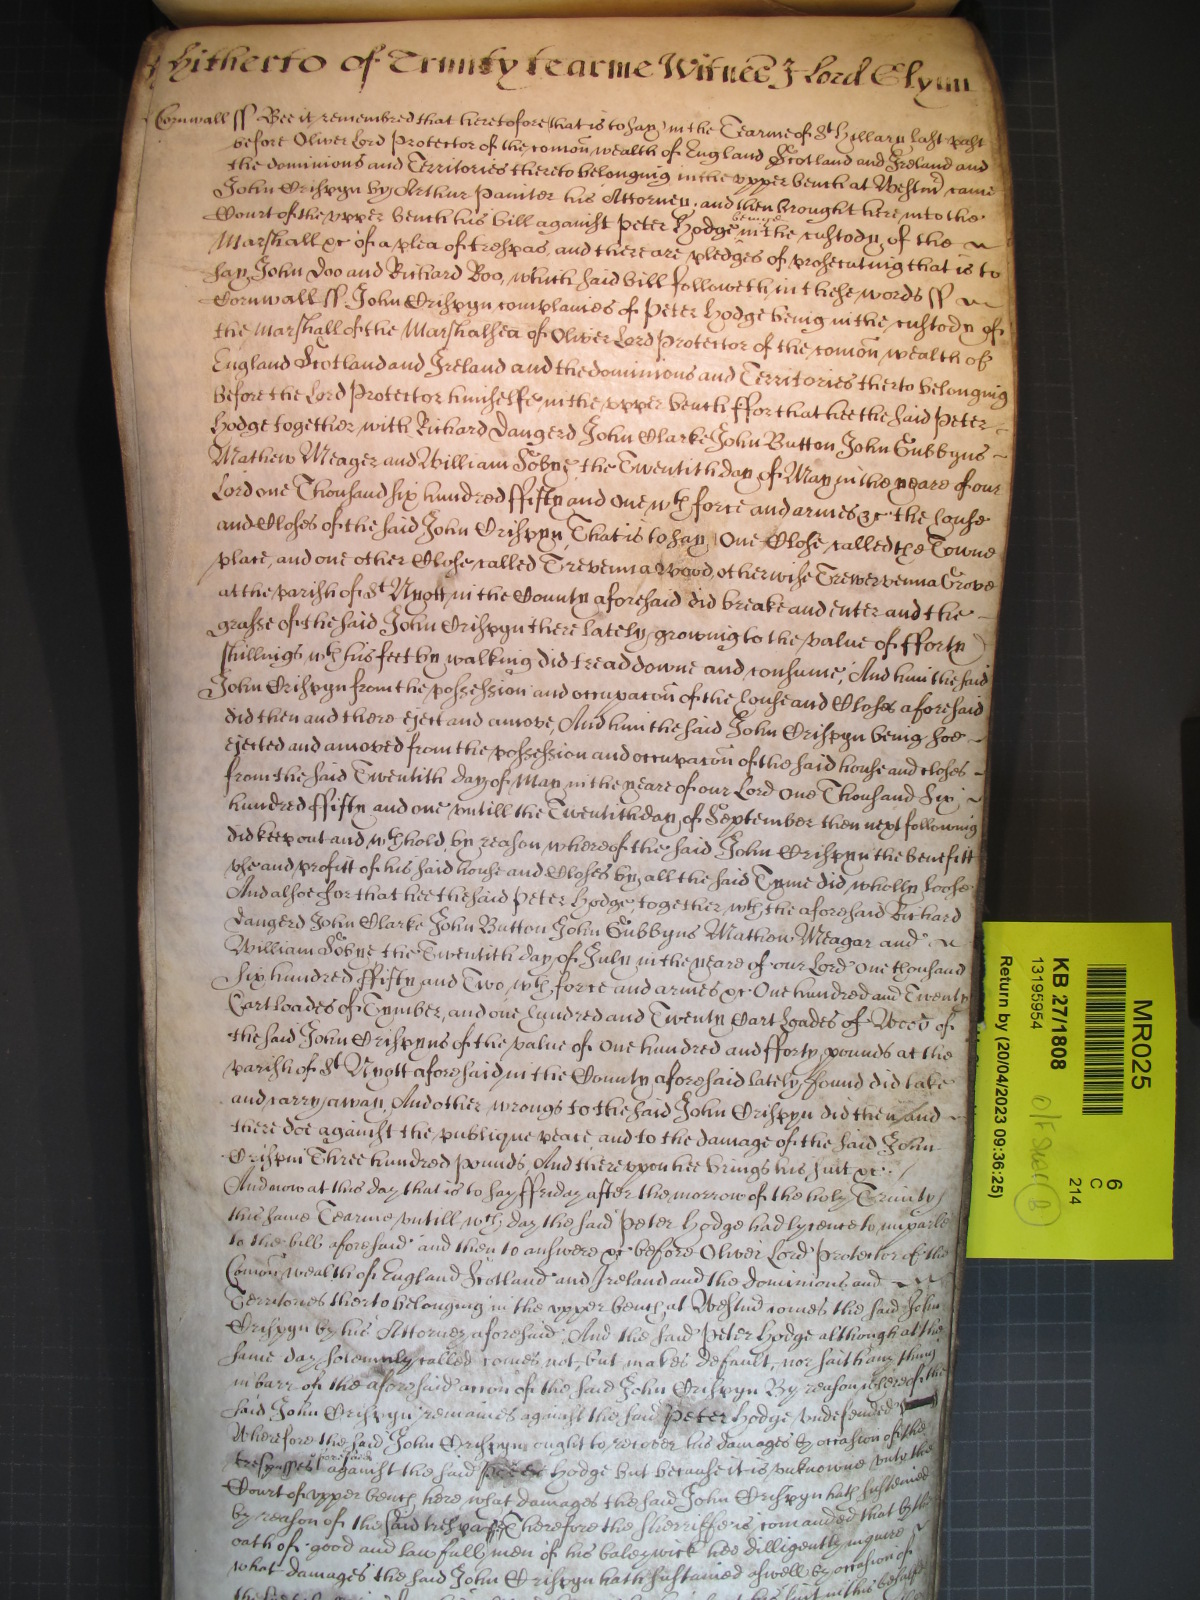 Hitherto of Trinity tearme Witnes J Lord Glynn
Cornwall ss Bee it remembred that heretofore that is to say in the Tearme of St Hillary last past
before Oliver Lord Protector of the comon wealth of England Scotland and Ireland and
the dominions and Territories thereto belonging in the upper bench at Westmr came
John Crispyn by Arthur Painter his Attorney, and then brought here into the
Court of the upper bench his bill against Peter Hodge beinge in the custody of the
Marshall &c of a plea of trespas, and there are pledges of prosecuting that is to
say John Doo and Richard Roo, which said bill followeth in these words ss
Cornwall ss John Crispyn complaines of Peter Hodge being in the custody of
the Marshall of the Marshalsea of Oliver Lord Protector of the comon wealth of
England Scotland and Ireland and the dominions and Territories therto belonging
Before the Lord Protector himselfe in the upper bench ffor that hee the said Peter
Hodge together with Richard Dangerd John Clarke John Button John Gubbyns
Mathew Meager and William Tobye the Twentith day of May in the yeare of our
Lord one Thousand six hundred ffifty and one wth force and armes &c the house
and Closes of the said John Crispyn, That is to say, One Close called the Towne
place, and one other Close called Trevenna wood otherwise Trewervenna Grove
at the parish of St Nyott in the County aforesaid did breake and enter and the
grasse of the said John Crispyn there lately growing to the value of fforty
shillings wth his feet by walking did tread downe and consume, And him the said
John Crispyn from the possession and occupacon of the house and Closes aforesaid
did then and there eject and amove, And him the said John Crispyn being soe
ejected and amoved from the possession and occupacon of the said house and closes
from the said Twentith day of May in the yeare of our Lord One Thousand Six
hundred ffifty and one untill the Twentith day of September then next following
did keep out and wthhold by reason whereof the said John Crispyn the benefitt
use and profitt of his said house and Closes by all the said Tyme did wholly loose
And alsoe for that hee the said Peter Hodge, together wth the aforesaid Richard
Dangerd John Clarke John Button John Gubbyns Mathew Meagar and
William Tobye the Twentith day of July in the yeare of our Lord One thousand
Six hundred ffifty and Two, wth force and armes &c One hundred and Twenty
Cart loades of Tymber, and one hundred and Twenty Cart Loades of Wood of
the said John Crispyns of the value of One hundred and fforty pounds at the
parish of St Nyott aforesaid in the County aforesaid lately found did take
and carry away, And other wrongs to the said John Crispyn did then and
there doe against the publique peace and to the damage of the said John
Crispin Three hundred pounds, And thereuppon hee brings his suit &c.
And now at this day that is to say ffriday after the morrow of the holy Trinity
this same Tearme untill wch day the said Peter Hodge had lycence to imparle
to the bill aforesaid and then to answere &c before Oliver Lord Protector of the
Comon wealth of England Scotland and Ireland and the dominions and
Territories therto belonging in the upper bench at Westmr comes the said John
Crispyn by his Attorney aforesaid, And the said Peter Hodge although at the
same day solemnly called comes not, but makes default, nor saith any thing
in barr of the aforesaid accon of the said John Crispyn By reason whereof the
said John Crispyn remaines against the said Peter Hodge undefended
Wherefore the said John Crispyn ought to recover his damages by occasion of the
trespasses aforesaid against the said Peter Hodge but because it is unknowne unto the
Court of upper bench here what damages the said John Crispyn hath susteined
by reason of the said trespasses Therefore the Sherriffe is comanded that by the
oath of good and lawfull men of his baleywick hee dilligently inquire
what damages the said John Crispyn hath sustained aswell by occasion of
MR025
6
C
214
KB 27/1808
13195954
Return by (20/04/2023 09:36:25)